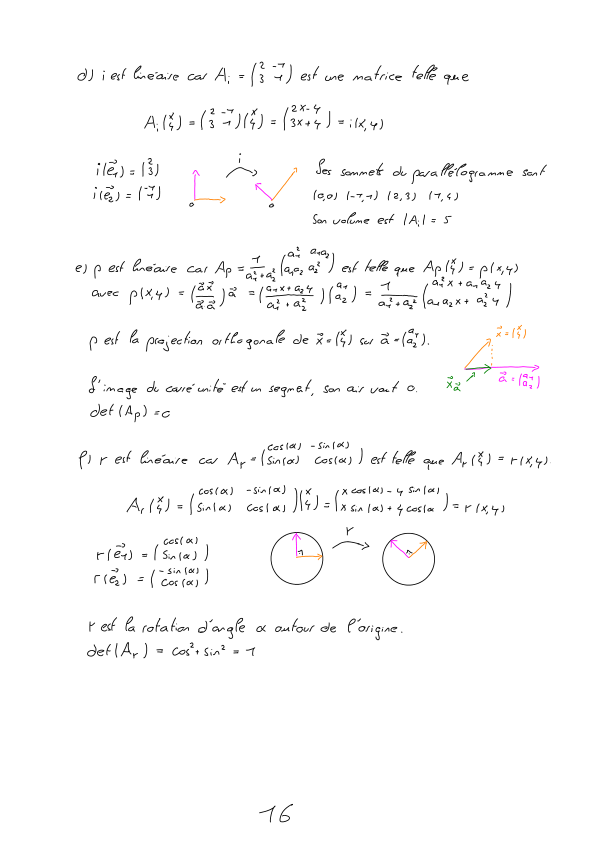 d) i est linéaire car A_i = (2 -1 / 3 1) est une matrice telle que
A_i (x / y) = (2 -1 / 3 1)(x / y) = (2x-y / 3x+y) = i(x,y)
i(e⃗_1) = (2 / 3)
i(e⃗_2) = (-1 / 1)
i
0
0
Les sommets du parallélogramme sont
(0,0) (-1,1) (2,3) (1,4)
Son volume est |A_i| = 5
e) p est linéaire car A_p = 1/(a_1² + a_2²) (a_1² a_1a_2 / a_1a_2 a_2²) est telle que A_p (x / y) = p(x,y)
avec p(x,y) = (a⃗x⃗ / a⃗a⃗) a⃗ = ((a_1x + a_2y) / (a_1² + a_2²)) (a_1 / a_2) = 1/(a_1² + a_2²) (a_1²x + a_1a_2y / a_1a_2x + a_2²y)
p est la projection orthogonale de x⃗ = (x / y) sur a⃗ = (a_1 / a_2).
x⃗ = (x / y)
x⃗_a⃗
a⃗ = (a_1 / a_2)
L'image du carré unité est un segment, son air vaut 0.
det(A_p) = 0
f) r est linéaire car A_r = (cos(α) -sin(α) / sin(α) cos(α)) est telle que A_r (x / y) = r(x,y)
A_r (x / y) = (cos(α) -sin(α) / sin(α) cos(α))(x / y) = (x cos(α) - y sin(α) / x sin(α) + y cos(α) = r(x,y)
r(e⃗_1) = (cos(α) / sin(α))
r(e⃗_2) = (-sin(α) / cos(α))
r
r est la rotation d'angle α autour de l'origine.
det(A_r) = cos² + sin² = 1
16